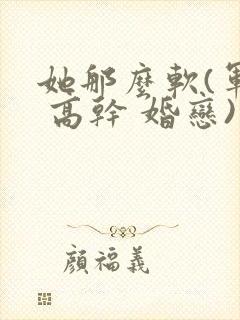 她那麼軟(軍
高幹 婚戀)
顔福義